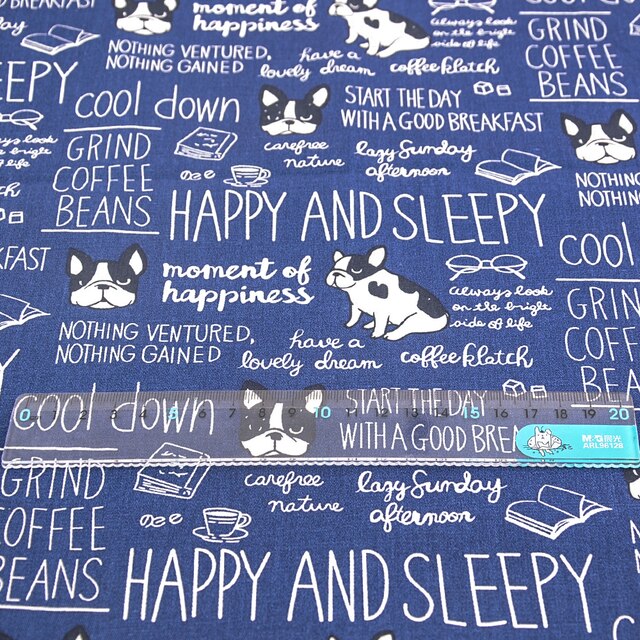 D BREAKFAST
moment of
happiness
NOTHING VENTURED,
NOTHING GAINED
have a
lovely dream
coffee klatch
always look
on the bright
side of life
GRIND
COFFEE
BEANS
EEPY
cool down
START THE DAY
WITH A GOOD BREAKFAST
ys look
e bright
f life
GRIND
COFFEE
BEANS
carefree
nature
lazy Sunday
afternoon
NOTHIN
NOTHIN
HAPPY AND SLEEPY
cool
KFAST
moment of
happiness
always look
on the bright
side of life
GRIN
COFF
BEA
NOTHING VENTURED,
NOTHING GAINED
have a
lovely dream
coffee klatch
cool down
START THE DAY
WITH A GOOD BREA
0 1 2 3 4 5 6 7 8 9 10 11 12 13 14 15 16 17 18 19 20
M&G 晨光
ARL96129
GRIND
COFFEE
BEANS
carefree
nature
lazy Sunday
afternoon
HAPPY AND SLEEPY